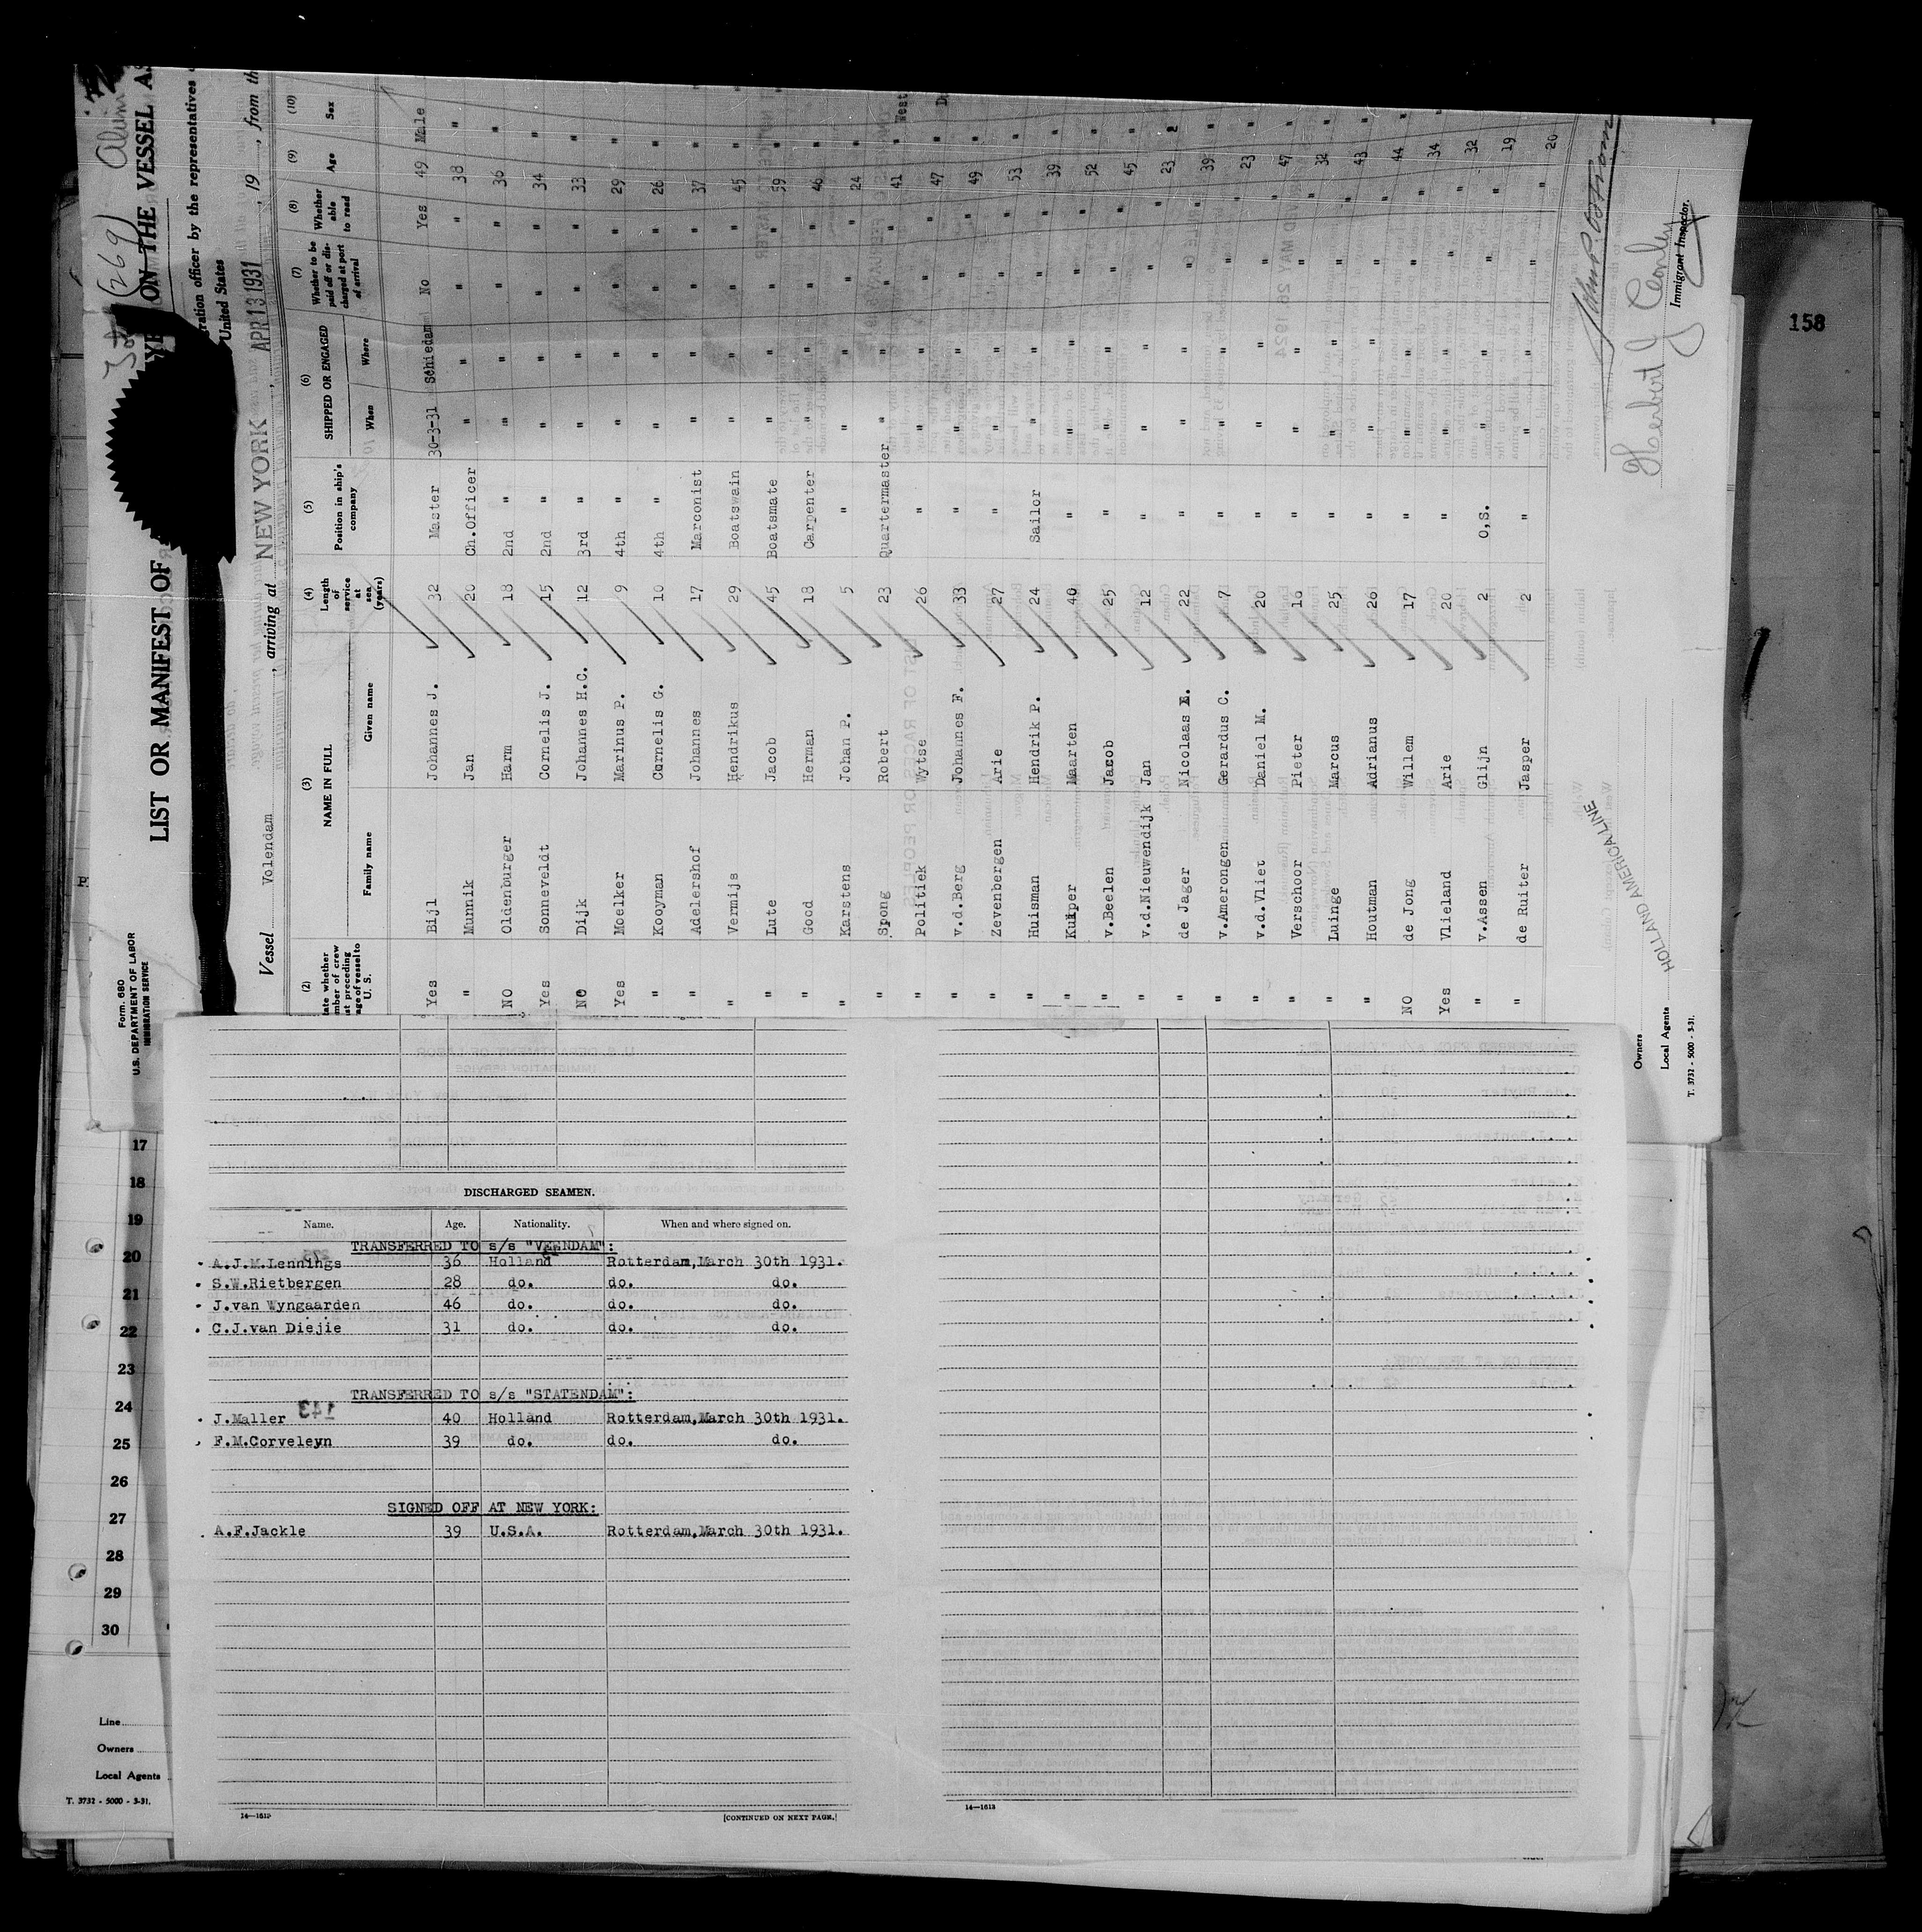 Form. 680
U.S. DEPARTMENT OF LABOR
IMMIGRATION SERVICE
LIST OR MANIFEST OF
ON THE VESSEL AS
gration officer by the representatives
United States
Vessel Volendam , arriving at NEW YORK , APR 13 1931 , 19 , from th
(2) (3) (4) (5) (6) (7) (8) (9) (10)
NAME IN FULL
Family name Given name
Length of service at sea (years)
Position in ship's company
SHIPPED OR ENGAGED
When Where
Whether to be paid off or discharged at port of arrival
Whether able to read
Age
Sex
Yes Bijl Johannes J. 32 Master 30-3-31 Schiedam No Yes 49 Male
" Munnik Jan 20 Ch.Officer " " " " 38 "
NO Oldenburger Harm 18 2nd " " " " " 36 "
Yes Sonneveldt Cornelis J. 15 2nd " " " " " 34 "
NO Dijk Johannes H.C. 12 3rd " " " " " 33 "
Yes Moelker Marinus P. 9 4th " " " " " 29 "
" Kooyman Cornelis G. 10 4th " " " " " 26 "
" Adelershof Johannes 17 Marconist " " " " 37 "
" Vermijs Hendrikus 29 Boatswain " " " " 45 "
" Lute Jacob 45 Boatsmate " " " " 59 "
" Good Herman 18 Carpenter " " " " 46 "
" Karstens Johan P. 5 " " " " " 24 "
" Spong Robert 23 Quartermaster " " " " 41 "
" Politiek Wytse 26 " " " " " 47
" v.d.Berg Johannes F. 33 " " " " " 49 "
" Zevenbergen Arie 27 " " " " " 53 "
" Huisman Hendrik P. 24 Sailor " " " " 39 "
" Kuiper Maarten 40 " " " " " 52 "
" v.Beelen Jacob 25 " " " " " 45 "
" v.d.Nieuwendijk Jan 12 " " " " " 23 "
" de Jager Nicolaas E. 22 " " " " " 39 "
" v.Amerongen Gerardus C. 7 " " " " " 23 "
" v.d.Vliet Daniel M. 20 " " " " " 47 "
" Verschoor Pieter 16 " " " " " 32 "
" Luinge Marcus 25 " " " " " 43 "
" Houtman Adrianus 26 " " " " " 44 "
NO de Jong Willem 17 " " " " " 34 "
Yes Vlieland Arie 20 " " " " " 32 "
" v.Assen Glijn 2 O.S. " " " " 19
" de Ruiter Jasper 2 " " " " " 20
Herbert J Conley
Immigrant Inspector.
Owners
Local Agents HOLLAND AMERICA LINE
T. 3732 - 5000 - 3-31.
158
17
18
19
20
21
22
23
24
25
26
27
28
29
30
Line
Owners
Local Agents
T. 3732 - 5000 - 3-31.
DISCHARGED SEAMEN.
Name. Age. Nationality. When and where signed on.
TRANSFERRED TO s/s "VEENDAM":
A.J.M.Lennings 36 Holland Rotterdam,March 30th 1931.
S.W.Rietbergen 28 do. do. do.
J.van Wyngaarden 46 do. do. do.
C.J.van Diejie 31 do. do. do.
TRANSFERRED TO s/s "STATENDAM":
J.Maller 40 Holland Rotterdam,March 30th 1931.
F.M.Corveleyn 39 do. do. do.
SIGNED OFF AT NEW YORK:
A.F.Jackle 39 U.S.A. Rotterdam,March 30th 1931.
[CONTINUED ON NEXT PAGE.]
14—1613